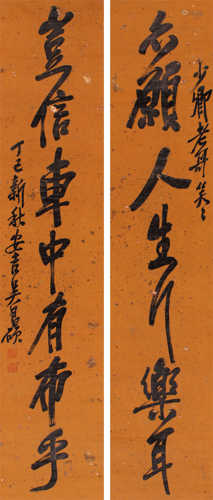 少卿老兄笑笑
亦願人生行樂耳
豈信車中有布乎
丁巳新秋安吉吳昌碩